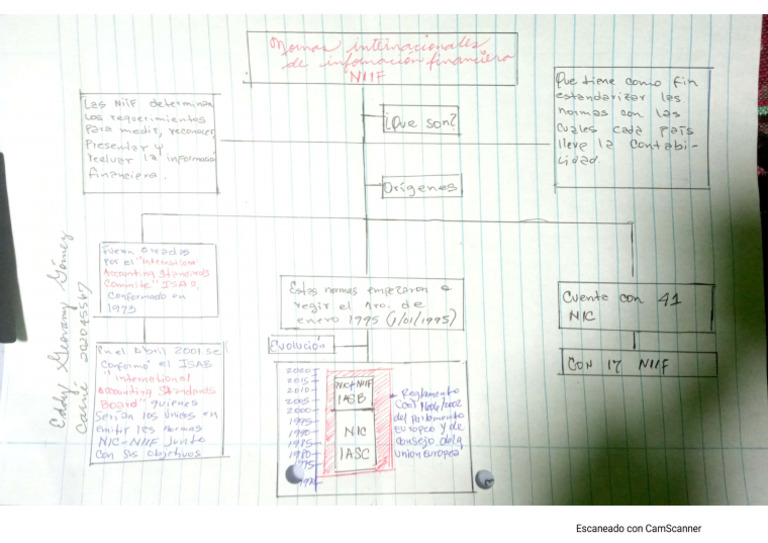 Normas internacionales
de información financiera
NIIF
Las NIIF determinan
Los requerimientos
para medir, reconocer
Presentar y
la informació
financiera.
¿Que son?
Que tiene como fin
estandarizar las
normas con las
cuales cada país
lleve la contabi-
lidad.
Orígenes
Eddy Geovany Gómez
Carné 202045567
Fueron creadas
Por el "International
Accounting Standards
Committe"
conformado en
1973
Estas normas empezaron a
regir el 1ro. de
enero 1995 (1/01/1995)
Cuenta con 41
NIC
Con 17 NIIF
Evolución
En el Abril 2001 se
conformó el IASB
"International
Accounting Standards
Board" quienes
Serían los Unicos en
Emitir las Normas
NIC-NIIF Junto
Con sus objetivos
2020
2015
2010
2005
2000
1995
1990
1985
1980
1975
NIC+NIIF
IASB
NIC
IASC
Reglamento
1606/2002
del Parlamento
Europeo y de
consejo de la
Union Europea
Escaneado con CamScanner